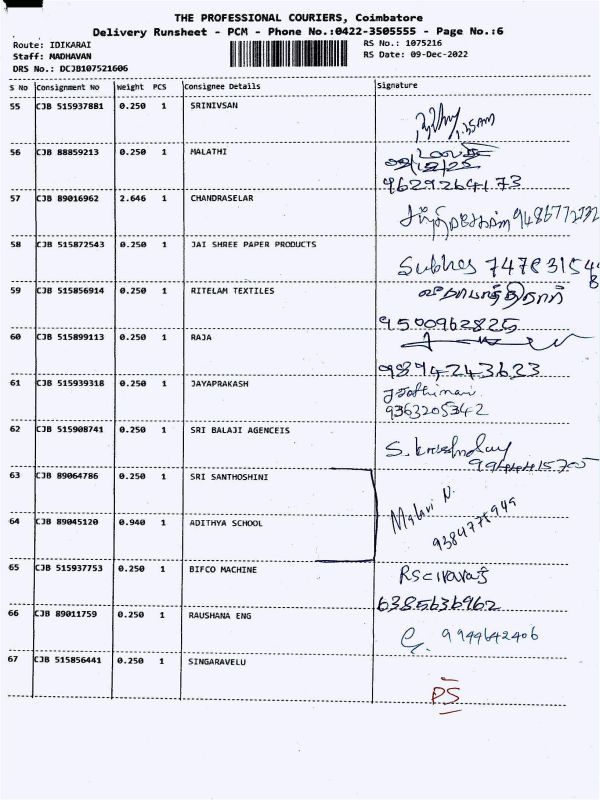 THE PROFESSIONAL COURIERS, Coimbatore
Delivery Runsheet - PCM - Phone No.:0422-3505555 - Page No.:6
Route: IDIKARAI RS No.: 1075216
Staff: MADHAVAN RS Date: 09-Dec-2022
DRS No.: DCJB107521606
S No Consignment No Weight PCS Consignee Details Signature
55 CJB 515937881 0.250 1 SRINIVSAN
56 CJB 88859213 0.250 1 MALATHI
9629264173
57 CJB 89016962 2.646 1 CHANDRASELAR
58 CJB 515872543 0.250 1 JAI SHREE PAPER PRODUCTS
Subhes 747831548
59 CJB 515856914 0.250 1 RITELAM TEXTILES
9500962825
60 CJB 515899113 0.250 1 RAJA
9894243623
61 CJB 515939318 0.250 1 JAYAPRAKASH
9363205342
62 CJB 515908741 0.250 1 SRI BALAJI AGENCEIS
63 CJB 89064786 0.250 1 SRI SANTHOSHINI
64 CJB 89045120 0.940 1 ADITHYA SCHOOL
Malavi N.
65 CJB 515937753 0.250 1 BIFCO MACHINE
6385636962
66 CJB 89011759 0.250 1 RAUSHANA ENG
9944642406
67 CJB 515856441 0.250 1 SINGARAVELU
PS